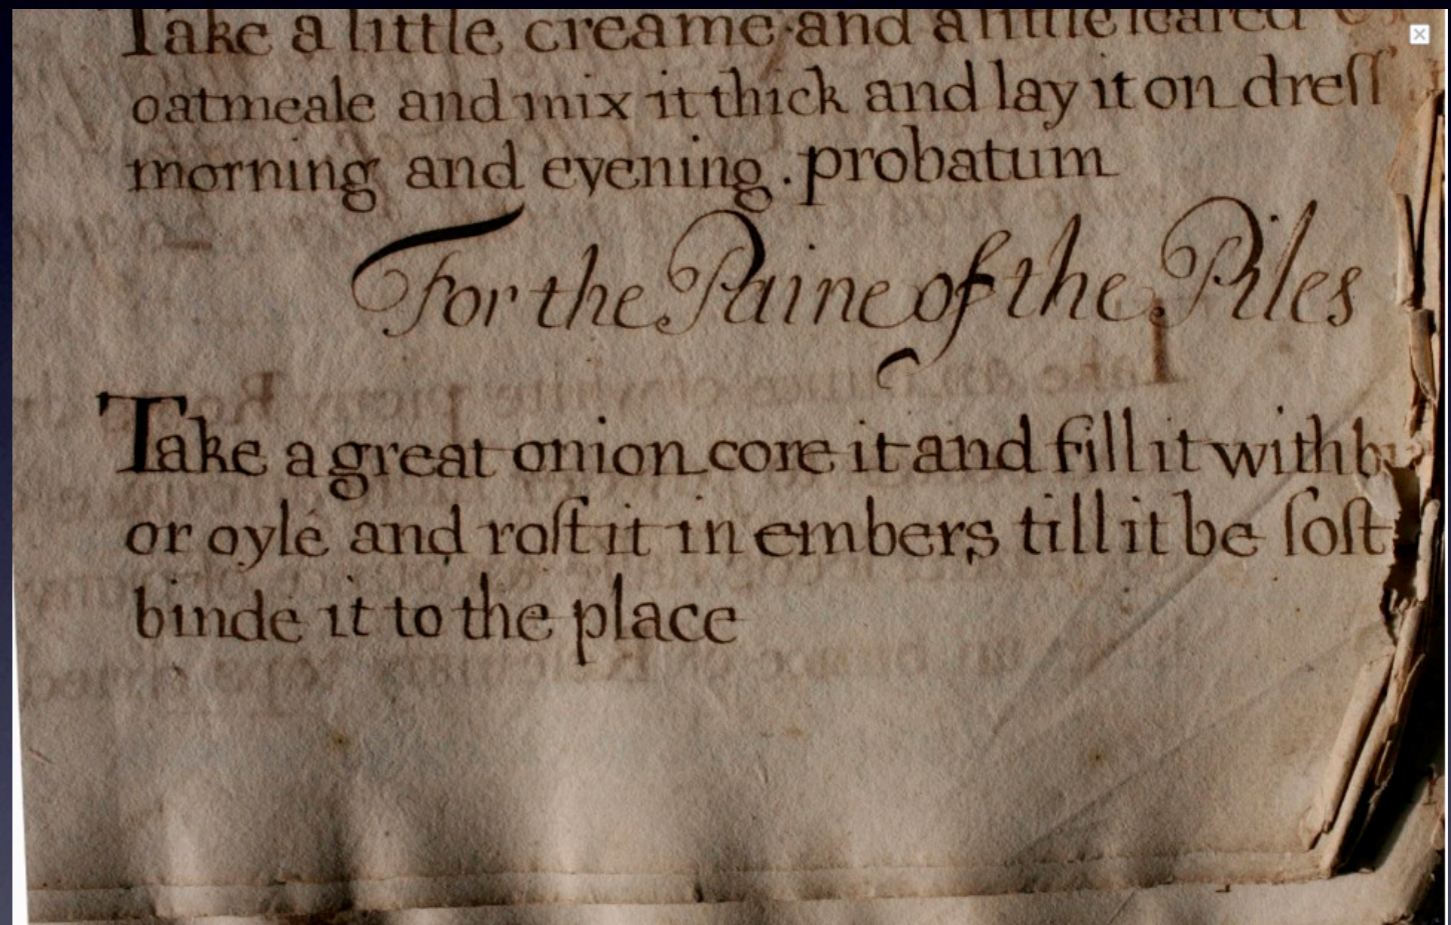 Take a little creame and a little searced
oatmeale and mix it thick and lay it on dreſſ
morning and evening . probatum
For the Paine of the Piles
Take a great onion core it and fill it with
or oyle and roſt it in embers till it be ſoft
binde it to the place